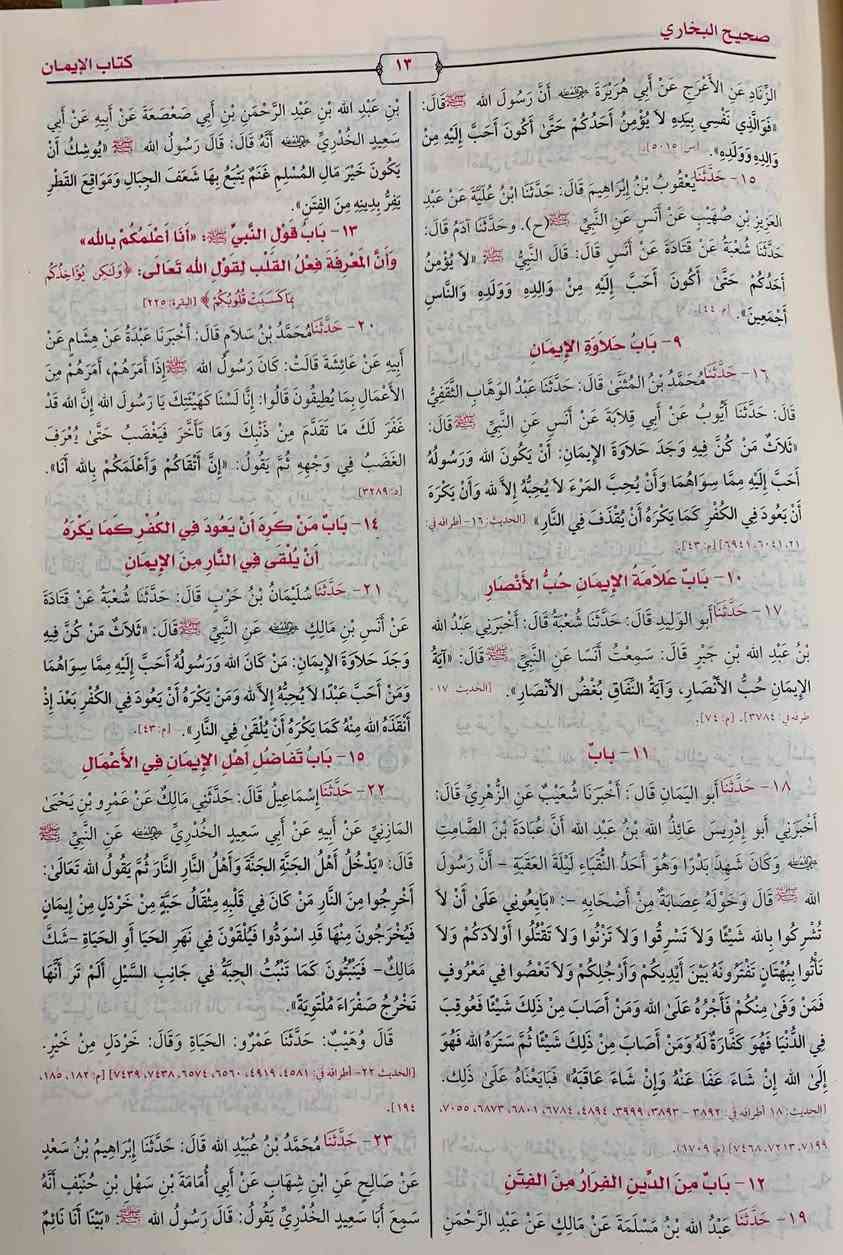 صحيح البخاري
١٣
كتاب الإيمان
الزِّنَادِ عَنِ الأَعْرَجِ عَنْ أَبِي هُرَيْرَةَ رضي الله عنه أَنَّ رَسُولَ الله ﷺ قَالَ:
«فَوَالَّذِي نَفْسِي بِيَدِهِ لاَ يُؤْمِنُ أَحَدُكُمْ حَتَّىٰ أَكُونَ أَحَبَّ إِلَيْهِ مِنْ
وَالِدِهِ وَوَلَدِهِ». [س ٥٠١٥].
١٥- حَدَّثَنَا يَعْقُوبُ بْنُ إِبْرَاهِيمَ قَالَ: حَدَّثَنَا ابْنُ عُلَيَّةَ عَنْ عَبْدِ
العَزِيزِ بْنِ صُهَيْبٍ عَنْ أَنَسٍ عَنِ النَّبِيِّ ﷺ (ح). وحَدَّثَنَا آدَمُ قَالَ:
حَدَّثَنَا شُعْبَةُ عَنْ قَتَادَةَ عَنْ أَنَسٍ قَالَ: قَالَ النَّبِيُّ ﷺ: «لاَ يُؤْمِنُ
أَحَدُكُمْ حَتَّىٰ أَكُونَ أَحَبَّ إِلَيْهِ مِنْ وَالِدِهِ وَوَلَدِهِ وَالنَّاسِ
أَجْمَعِينَ». [م ٤٤].
٩- بَابُ حَلاَوَةِ الإِيمَانِ
١٦- حَدَّثَنَا مُحَمَّدُ بْنُ المُثَنَّىٰ قَالَ: حَدَّثَنَا عَبْدُ الوَهَّابِ الثَّقَفِيُّ
قَالَ: حَدَّثَنَا أَيُّوبُ عَنْ أَبِي قِلاَبَةَ عَنْ أَنَسٍ عَنِ النَّبِيِّ ﷺ قَالَ:
«ثَلاَثٌ مَنْ كُنَّ فِيهِ وَجَدَ حَلاَوَةَ الإِيمَانِ: أَنْ يَكُونَ الله وَرَسُولُهُ
أَحَبَّ إِلَيْهِ مِمَّا سِوَاهُمَا وَأَنْ يُحِبَّ المَرْءَ لاَ يُحِبُّهُ إِلاَّ لله وَأَنْ يَكْرَهَ
أَنْ يَعُودَ فِي الكُفْرِ كَمَا يَكْرَهُ أَنْ يُقْذَفَ فِي النَّارِ» [الحديث: ١٦- أطرافه في:
٢١، ٦٠٤١، ٦٩٤١] [م: ٤٣].
١٠- بَابٌ عَلاَمَةُ الإِيمَانِ حُبُّ الأَنْصَارِ
١٧- حَدَّثَنَا أَبو الوَلِيدِ قَالَ: حَدَّثَنَا شُعْبَةُ قَالَ: أَخْبَرَنِي عَبْدُ الله
بْنُ عَبْدِ الله بْنِ جَبْرٍ قَالَ: سَمِعْتُ أَنَسًا عَنِ النَّبِيِّ ﷺ قَالَ: «آيَةُ
الإِيمَانِ حُبُّ الأَنْصَارِ، وَآيَةُ النِّفَاقِ بُغْضُ الأَنْصَارِ». [الحديث ١٧-
طرفه في: ٣٧٨٤]. [م: ٧٤].
١١- بَابٌ
١٨- حَدَّثَنَا أَبو اليَمَانِ قَالَ: أَخْبَرَنَا شُعَيْبٌ عَنِ الزُّهْرِيِّ قَالَ:
أَخْبَرَنِي أَبو إِدْرِيسَ عَائِذُ الله بْنُ عَبْدِ الله أَنَّ عُبَادَةَ بْنَ الصَّامِتِ
رضي الله عنه وَكَانَ شَهِدَ بَدْرًا وَهُوَ أَحَدُ النُّقَبَاءِ لَيْلَةَ العَقَبَةِ - أَنَّ رَسُولَ
الله ﷺ قَالَ وَحَوْلَهُ عِصَابَةٌ مِنْ أَصْحَابِهِ -: «بَايِعُونِي عَلَىٰ أَنْ لاَ
تُشْرِكُوا بِالله شَيْئًا وَلاَ تَسْرِقُوا وَلاَ تَزْنُوا وَلاَ تَقْتُلُوا أَوْلاَدَكُمْ وَلاَ
تَأْتُوا بِبُهْتَانٍ تَفْتَرُونَهُ بَيْنَ أَيْدِيكُمْ وَأَرْجُلِكُمْ وَلاَ تَعْصُوا فِي مَعْرُوفٍ
فَمَنْ وَفَىٰ مِنْكُمْ فَأَجْرُهُ عَلَىٰ الله وَمَنْ أَصَابَ مِنْ ذَلِكَ شَيْئًا فَعُوقِبَ
فِي الدُّنْيَا فَهُوَ كَفَّارَةٌ لَهُ وَمَنْ أَصَابَ مِنْ ذَلِكَ شَيْئًا ثُمَّ سَتَرَهُ الله فَهُوَ
إِلَىٰ الله إِنْ شَاءَ عَفَا عَنْهُ وَإِنْ شَاءَ عَاقَبَهُ» فَبَايَعْنَاهُ عَلَىٰ ذَلِكَ.
[الحديث: ١٨ أطرافه في: ٣٨٩٢- ٣٨٩٣، ٣٩٩٩، ٤٨٩٤، ٦٧٨٤، ٦٨٠١، ٦٨٧٣، ٧٠٥٥،
٧١٩٩، ٧٢١٣، ٧٤٦٨] [م: ١٧٠٩].
١٢- بَابٌ مِنَ الدِّينِ الفِرَارُ مِنَ الفِتَنِ
١٩- حَدَّثَنَا عَبْدُ الله بْنُ مَسْلَمَةَ عَنْ مَالِكٍ عَنْ عَبْدِ الرَّحْمَنِ
بْنِ عَبْدِ الله بْنِ عَبْدِ الرَّحْمَنِ بْنِ أَبِي صَعْصَعَةَ عَنْ أَبِيهِ عَنْ أَبِي
سَعِيدٍ الخُدْرِيِّ رضي الله عنه أَنَّهُ قَالَ: قَالَ رَسُولُ الله ﷺ «يُوشِكُ أَنْ
يَكُونَ خَيْرَ مَالِ المُسْلِمِ غَنَمٌ يَتْبَعُ بِهَا شَعَفَ الجِبَالِ وَمَوَاقِعَ القَطْرِ
يَفِرُّ بِدِينِهِ مِنَ الفِتَنِ».
١٣- بَابُ قَوْلِ النَّبِيِّ ﷺ: «أَنَا أَعْلَمُكُمْ بِالله»
وَأَنَّ المَعْرِفَةَ فِعْلُ القَلْبِ لِقَوْلِ الله تَعَالَىٰ: ﴿وَلَٰكِن يُؤَاخِذُكُم
بِمَا كَسَبَتْ قُلُوبُكُمْ﴾ [البقرة: ٢٢٥]
٢٠- حَدَّثَنَا مُحَمَّدُ بْنُ سَلاَمٍ قَالَ: أَخْبَرَنَا عَبْدَةُ عَنْ هِشَامٍ عَنْ
أَبِيهِ عَنْ عَائِشَةَ قَالَتْ: كَانَ رَسُولُ الله ﷺ إِذَا أَمَرَهُمْ، أَمَرَهُمْ مِنَ
الأَعْمَالِ بِمَا يُطِيقُونَ قَالُوا: إِنَّا لَسْنَا كَهَيْئَتِكَ يَا رَسُولَ الله إِنَّ الله قَدْ
غَفَرَ لَكَ مَا تَقَدَّمَ مِنْ ذَنْبِكَ وَمَا تَأَخَّرَ فَيَغْضَبُ حَتَّىٰ يُعْرَفَ
الغَضَبُ فِي وَجْهِهِ ثُمَّ يَقُولُ: «إِنَّ أَتْقَاكُمْ وَأَعْلَمَكُمْ بِالله أَنَا».
[د: ٣٢٨٩].
١٤- بَابٌ مَنْ كَرِهَ أَنْ يَعُودَ فِي الكُفْرِ كَمَا يَكْرَهُ
أَنْ يُلْقَىٰ فِي النَّارِ مِنَ الإِيمَانِ
٢١- حَدَّثَنَا سُلَيْمَانُ بْنُ حَرْبٍ قَالَ: حَدَّثَنَا شُعْبَةُ عَنْ قَتَادَةَ
عَنْ أَنَسِ بْنِ مَالِكٍ رضي الله عنه عَنِ النَّبِيِّ ﷺ قَالَ: «ثَلاَثٌ مَنْ كُنَّ فِيهِ
وَجَدَ حَلاَوَةَ الإِيمَانِ: مَنْ كَانَ الله وَرَسُولُهُ أَحَبَّ إِلَيْهِ مِمَّا سِوَاهُمَا
وَمَنْ أَحَبَّ عَبْدًا لاَ يُحِبُّهُ إِلاَّ لله وَمَنْ يَكْرَهُ أَنْ يَعُودَ فِي الكُفْرِ بَعْدَ إِذْ
أَنْقَذَهُ الله مِنْهُ كَمَا يَكْرَهُ أَنْ يُلْقَىٰ فِي النَّارِ». [م: ٤٣].
١٥- بَابُ تَفَاضُلِ أَهْلِ الإِيمَانِ فِي الأَعْمَالِ
٢٢- حَدَّثَنَا إِسْمَاعِيلُ قَالَ: حَدَّثَنِي مَالِكٌ عَنْ عَمْرِو بْنِ يَحْيَىٰ
المَازِنِيِّ عَنْ أَبِيهِ عَنْ أَبِي سَعِيدٍ الخُدْرِيِّ رضي الله عنه عَنِ النَّبِيِّ ﷺ
قَالَ: «يَدْخُلُ أَهْلُ الجَنَّةِ الجَنَّةَ وَأَهْلُ النَّارِ النَّارَ ثُمَّ يَقُولُ الله تَعَالَىٰ:
أَخْرِجُوا مِنَ النَّارِ مَنْ كَانَ فِي قَلْبِهِ مِثْقَالُ حَبَّةٍ مِنْ خَرْدَلٍ مِنْ إِيمَانٍ
فَيُخْرَجُونَ مِنْهَا قَدِ اسْوَدُّوا فَيُلْقَوْنَ فِي نَهَرِ الحَيَا أَوِ الحَيَاةِ -شَكَّ
مَالِكٌ- فَيَنْبُتُونَ كَمَا تَنْبُتُ الحِبَّةُ فِي جَانِبِ السَّيْلِ أَلَمْ تَرَ أَنَّهَا
تَخْرُجُ صَفْرَاءَ مُلْتَوِيَةً».
قَالَ وُهَيْبٌ: حَدَّثَنَا عَمْرٌو: الحَيَاةِ وَقَالَ: خَرْدَلٍ مِنْ خَيْرٍ.
[الحديث ٢٢- أطرافه في: ٤٥٨١، ٤٩١٩، ٦٥٦٠، ٦٥٧٤، ٧٤٣٨، ٧٤٣٩] [م: ١٨٢، ١٨٥،
١٩٤].
٢٣- حَدَّثَنَا مُحَمَّدُ بْنُ عُبَيْدِ الله قَالَ: حَدَّثَنَا إِبْرَاهِيمُ بْنُ سَعْدٍ
عَنْ صَالِحٍ عَنِ ابْنِ شِهَابٍ عَنْ أَبِي أُمَامَةَ بْنِ سَهْلِ بْنِ حُنَيْفٍ أَنَّهُ
سَمِعَ أَبَا سَعِيدٍ الخُدْرِيَّ يَقُولُ: قَالَ رَسُولُ الله ﷺ: «بَيْنَا أَنَا نَائِمٌ